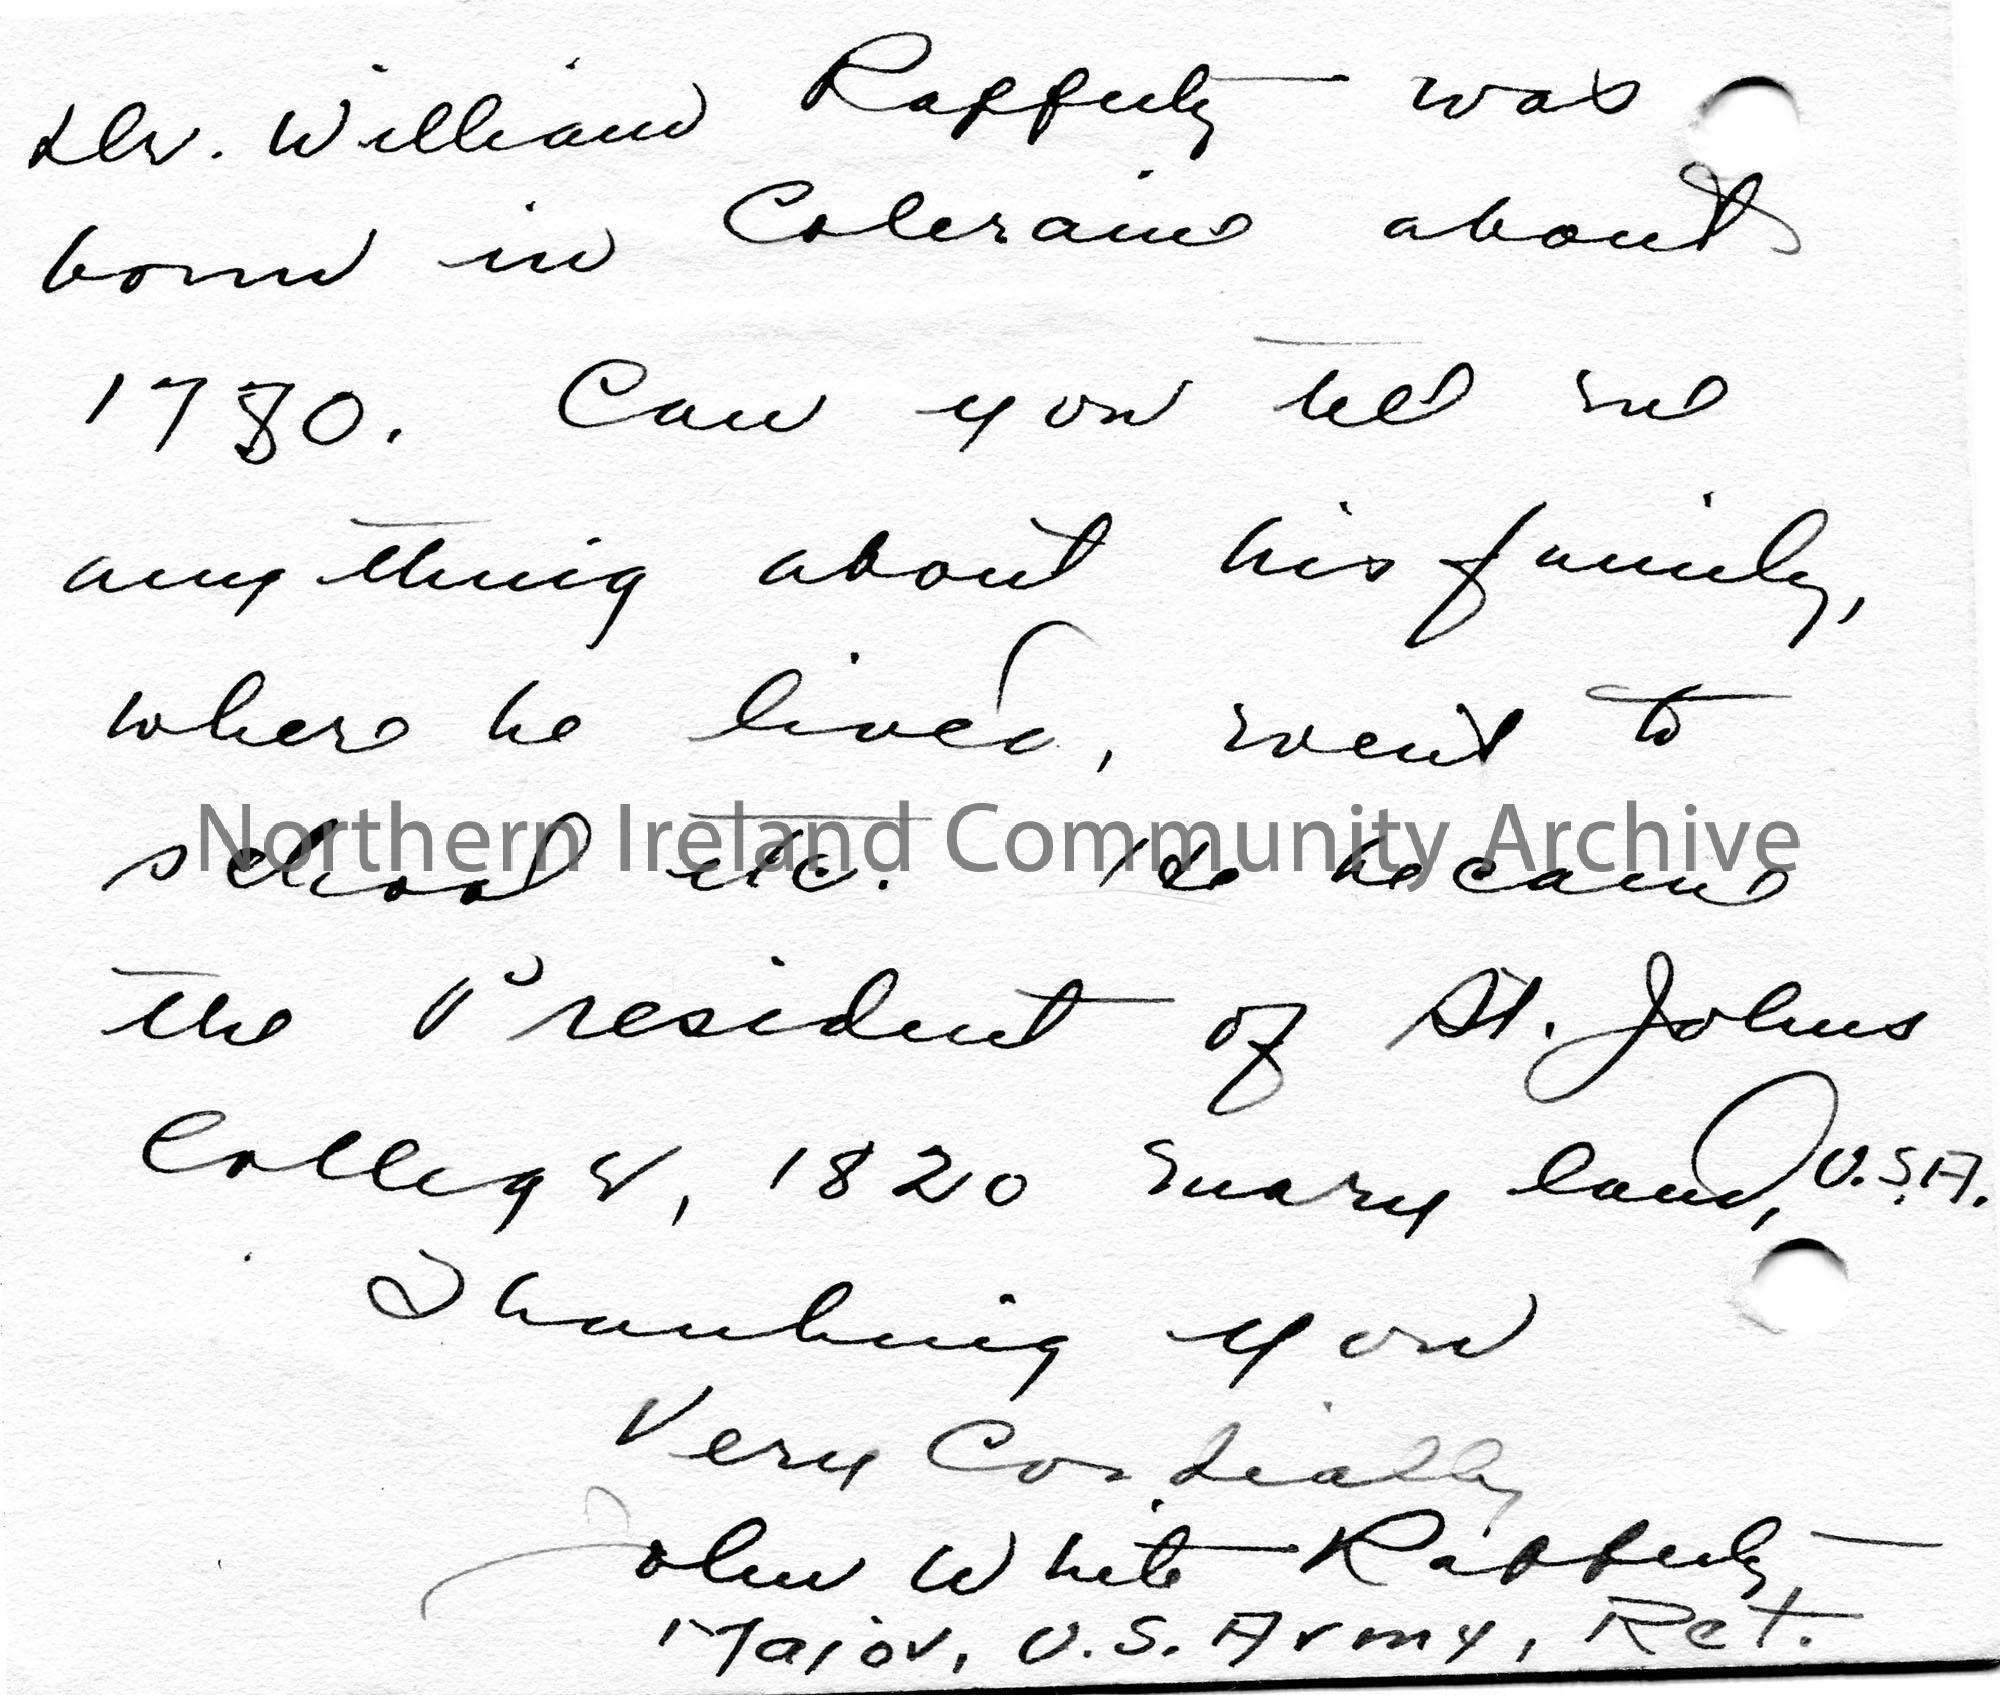 Dr. William Rafferty was
born in Coleraine about
1780. Can you tell me
anything about his family,
where he lived, went to
school etc. He became
Northern Ireland Community Archive
the President of St. Johns
College, 1820 Maryland, U.S.A.
Thanking you
Very Cordially
John White Rafferty,
Major, U.S. Army, Ret.